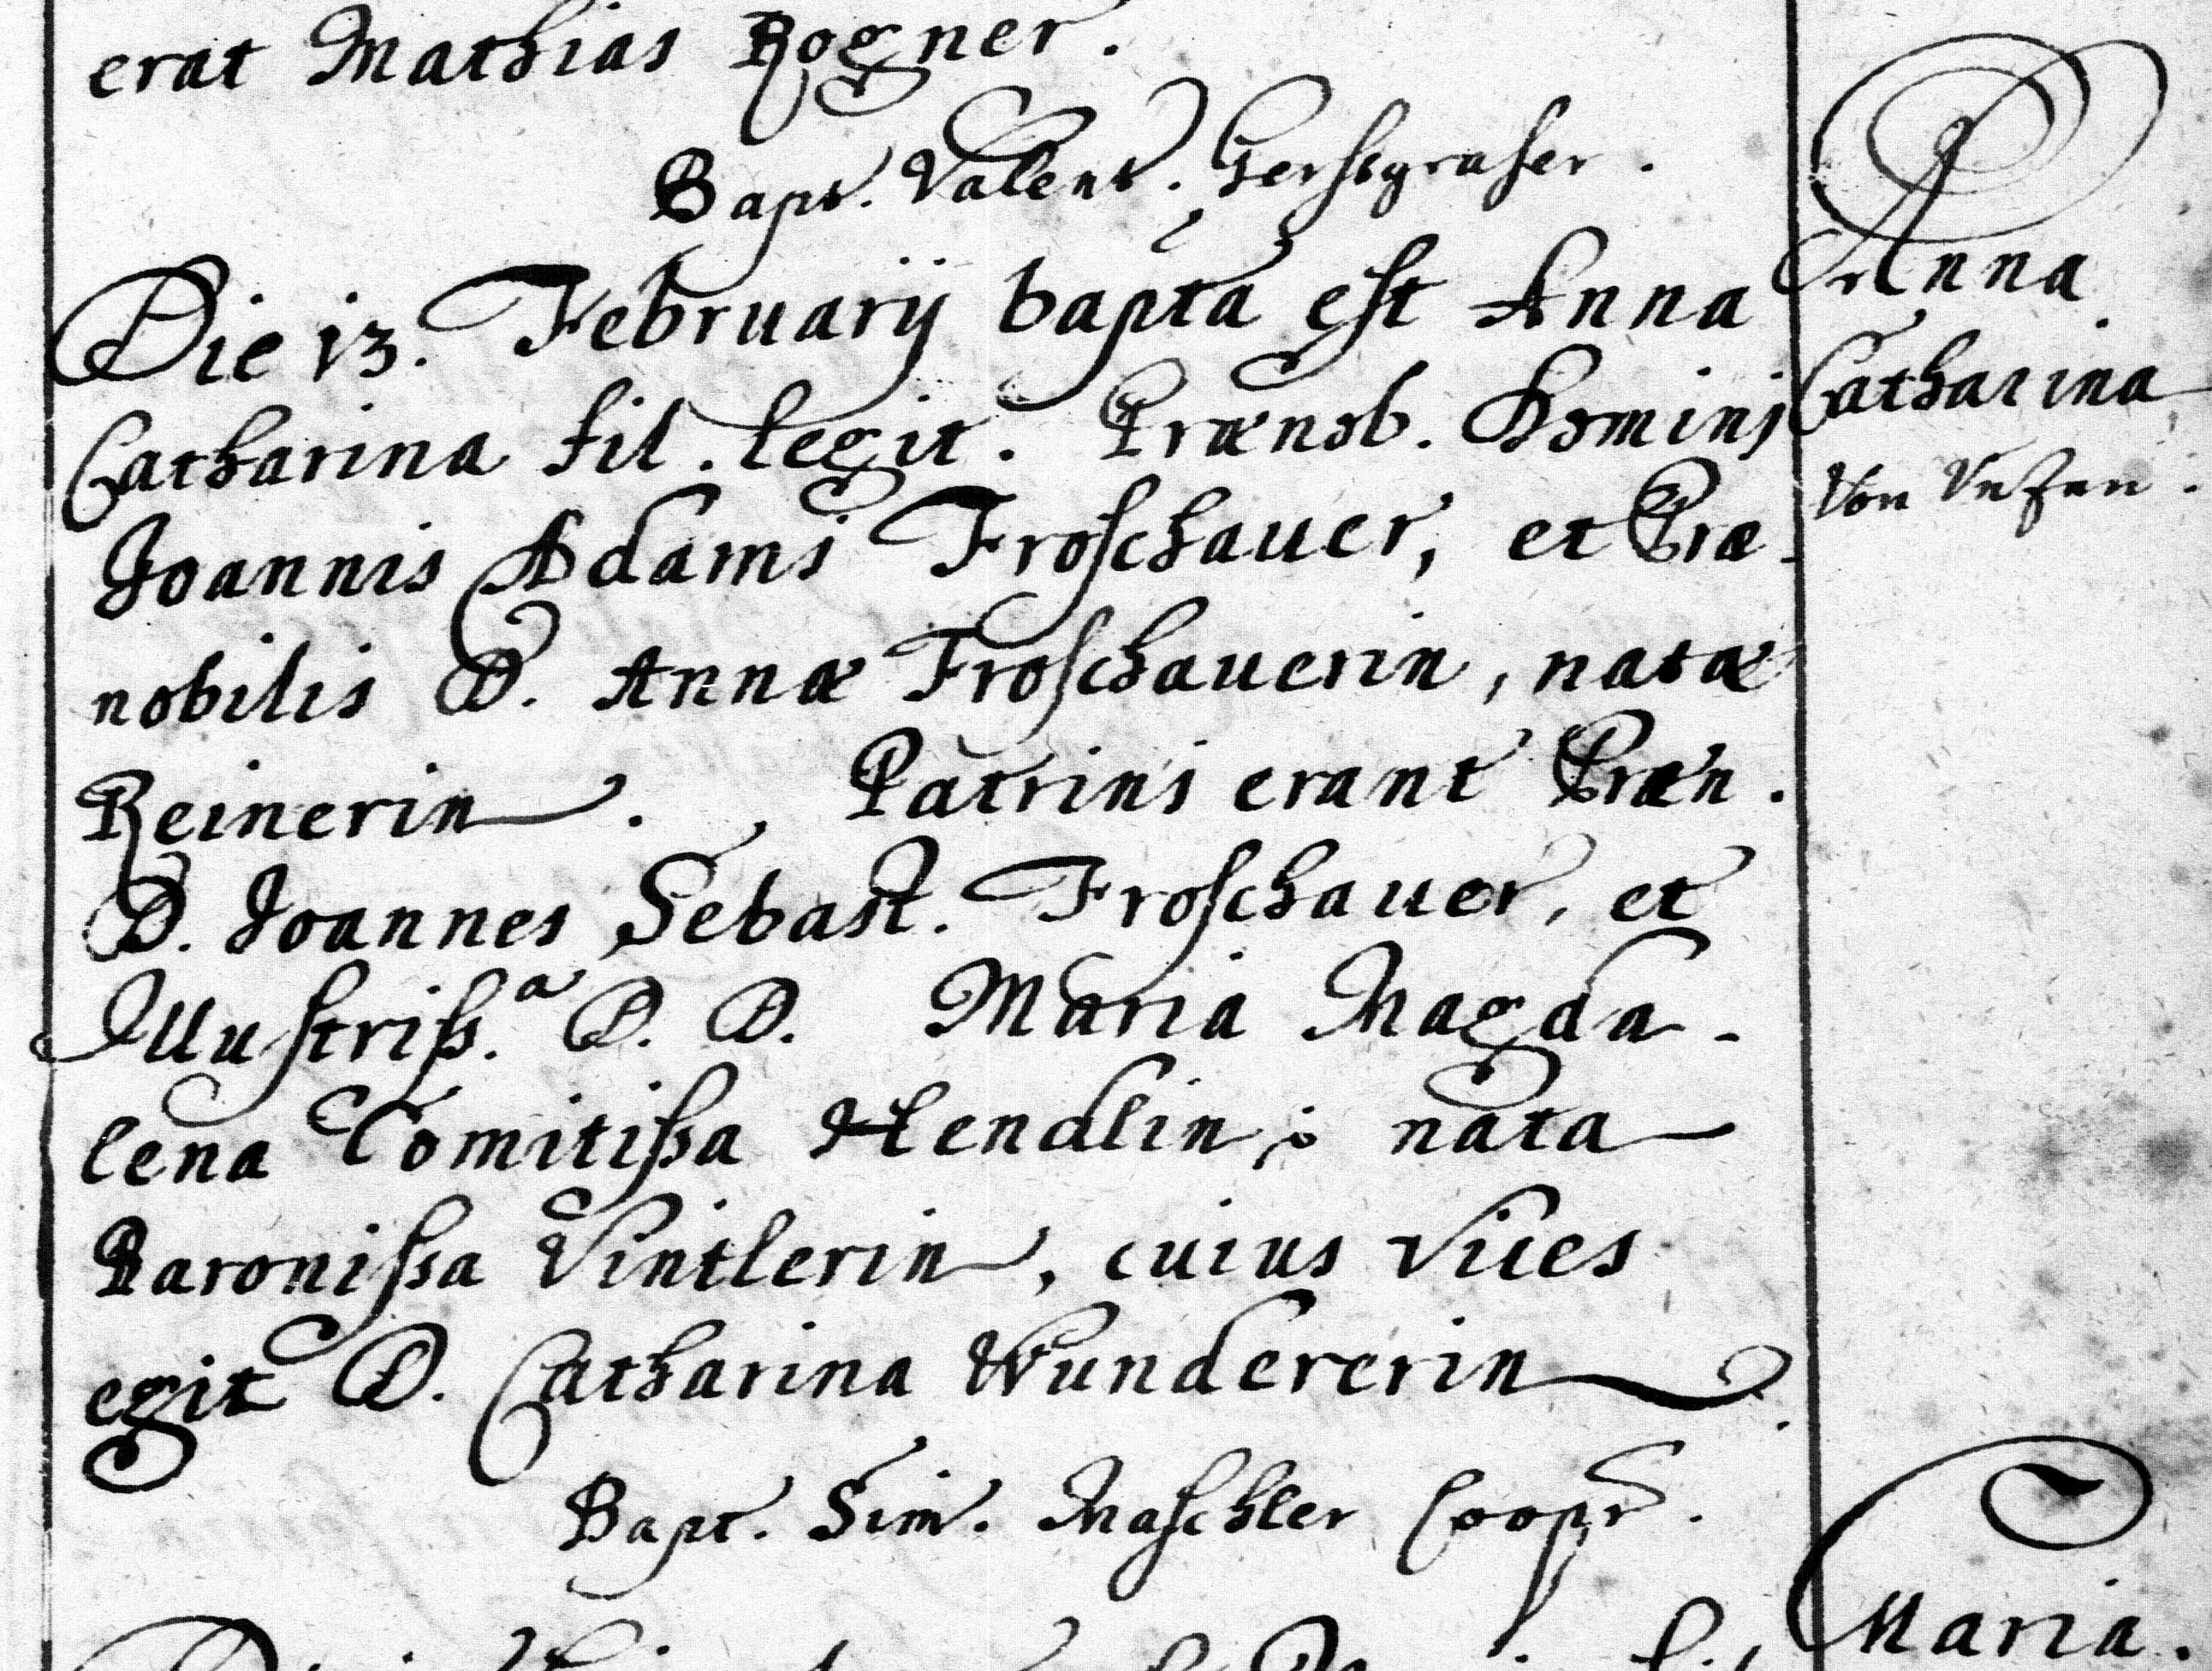 erat Mathias Rogner.
Bapt. Valent. Gerstgraser.
Die 13. Februarij bapta est Anna
Catharina fil. legit. Prænob. Dominj
Joannis Adami Froschauer, et Præ-
nobilis D. Annæ Froschauerin, natæ
Reinerin. Patrini erant Præn.
D. Joannes Sebast. Froschauer, et
Illustriss.a D. D. Maria Magda-
lena Comitissa Hendlin, nata
Baronissa Vintlerin, cuius vices
egit D. Catharina Wundererin.
Bapt. Sim. Maschler Coopr.
Anna
Catharina
Von
Maria.